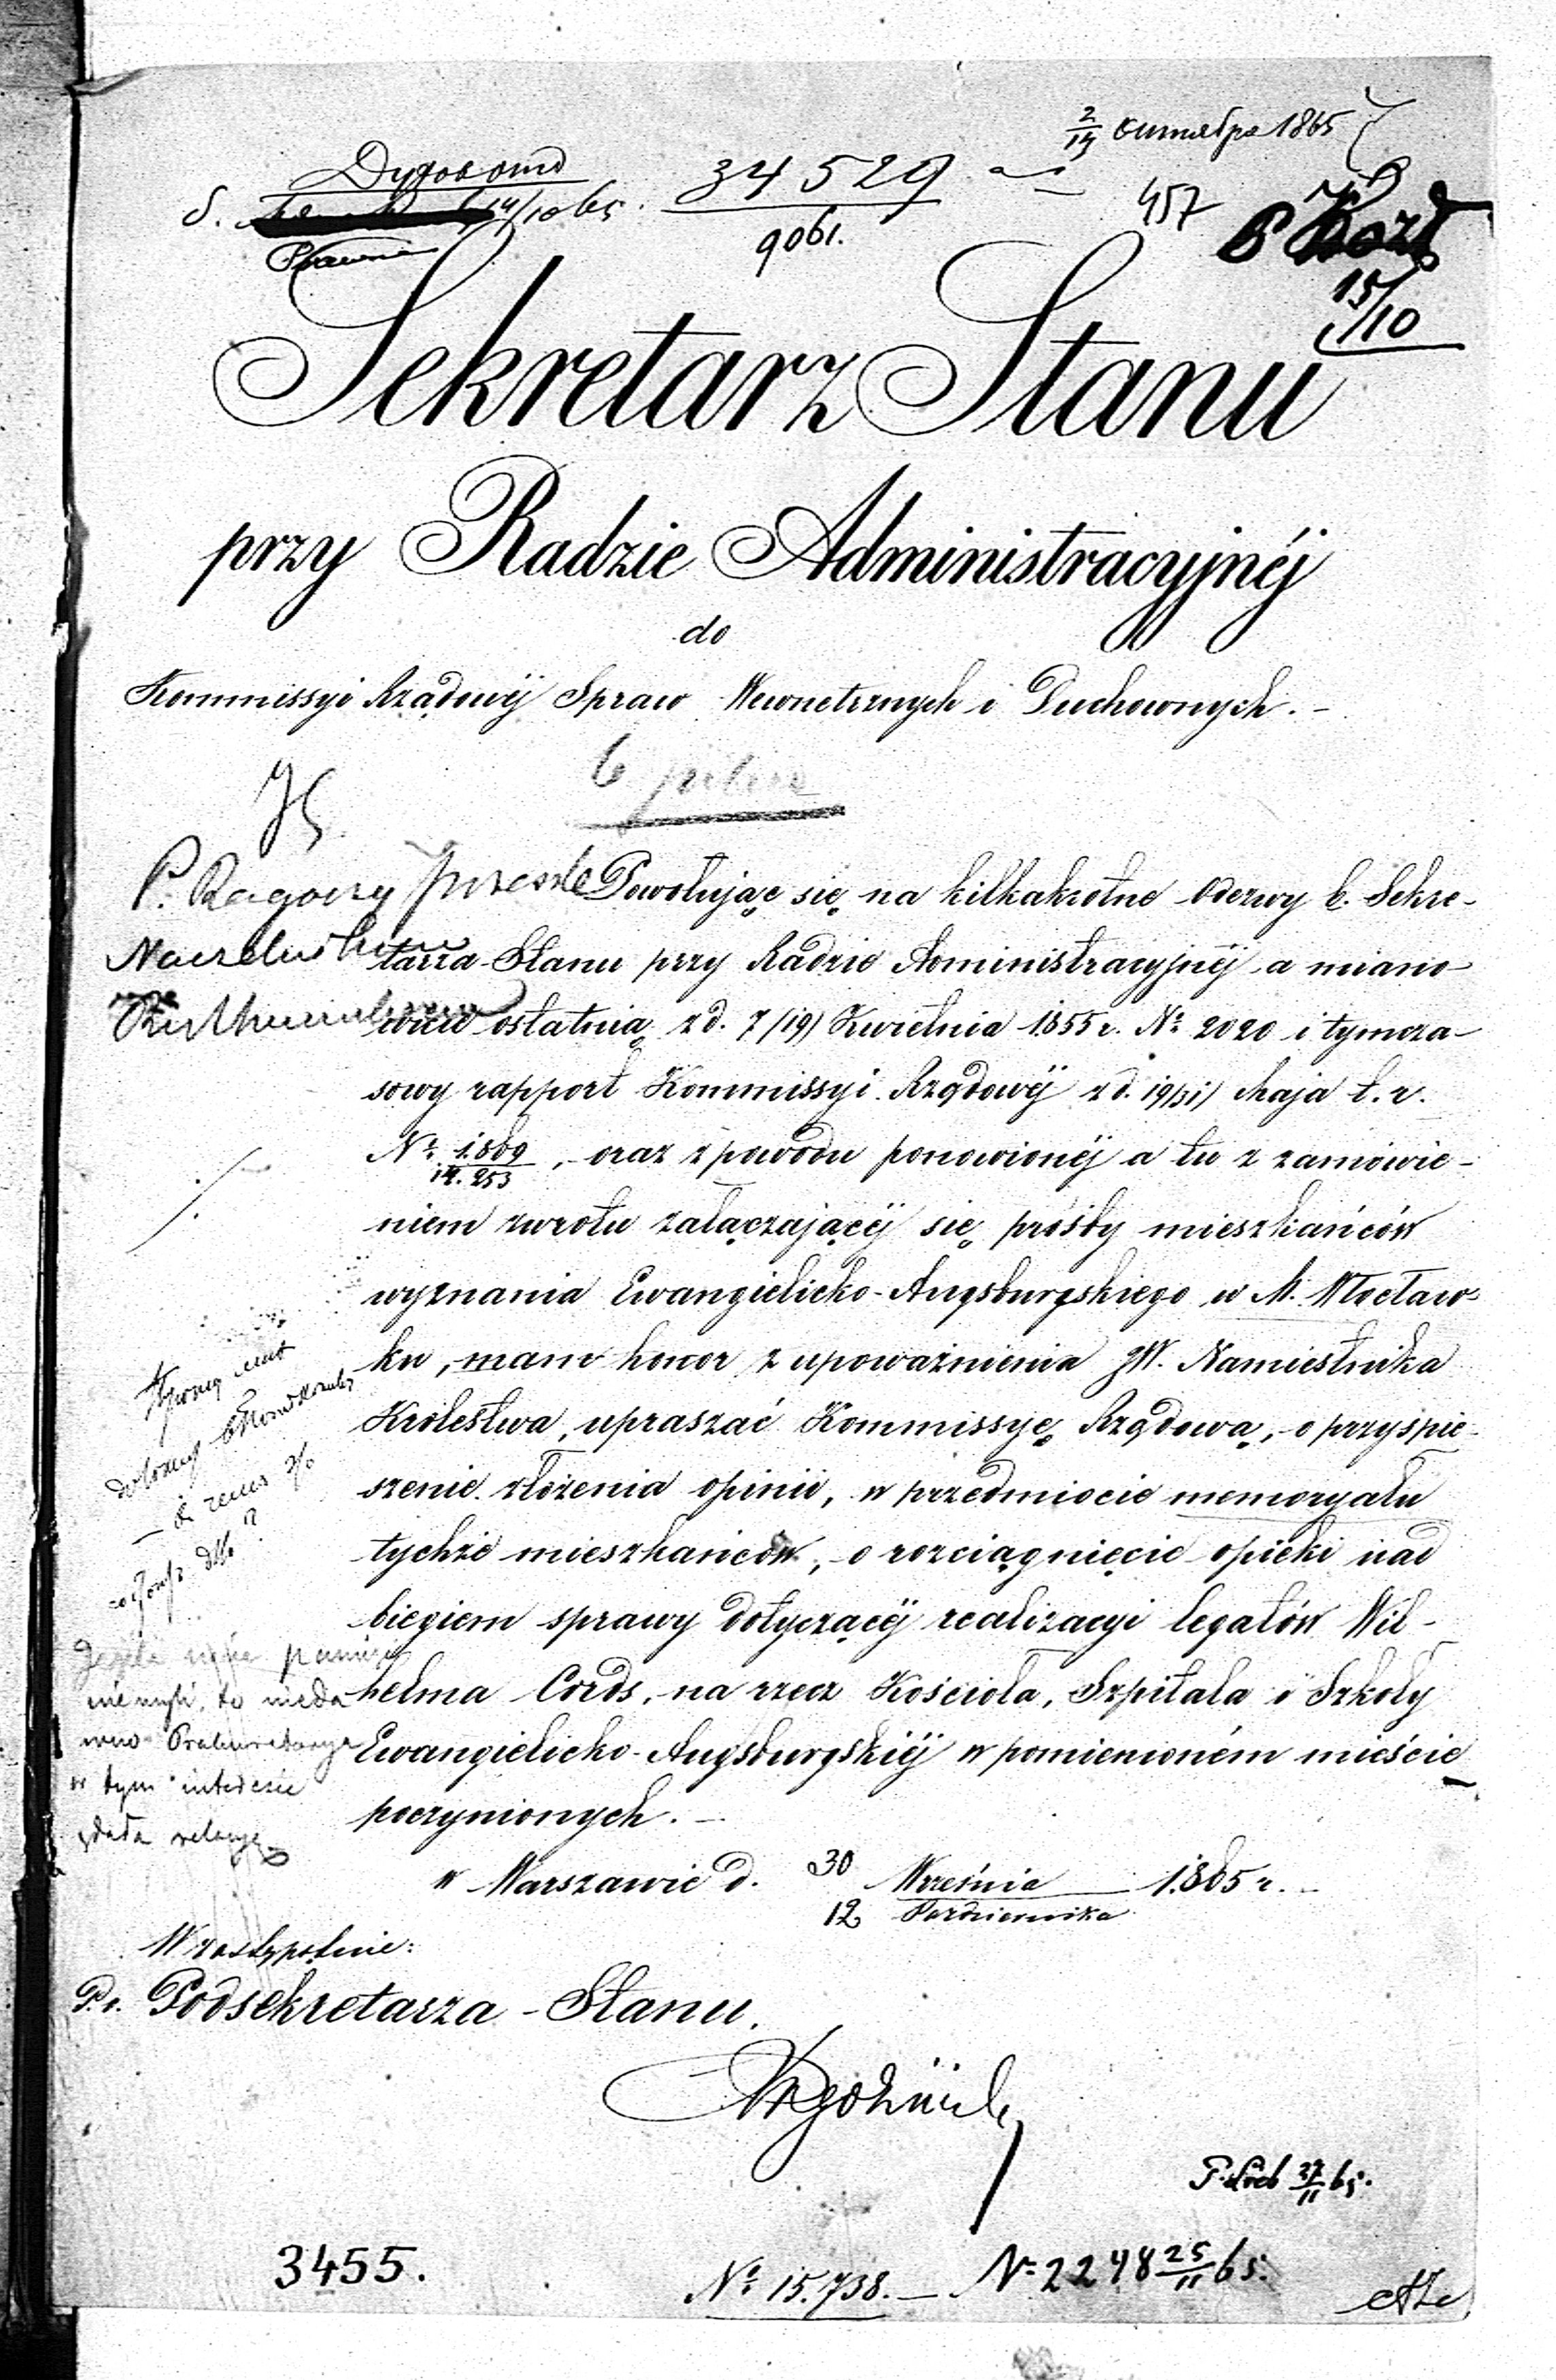 2/14 октября 1865
34529
9061.
14/10 65.
457
15/10
Sekretarz Stanu
przy Radzie Administracyjnéj
do
Kommissyi Rządowéj Spraw Wewnetrznych i Duchownych. -
Powołując się na kilkakrotne Odezwy b. Sekre-
tarza Stanu przy Radzie Administracyjnéj a miano-
wicie ostatnią z d. 7/19/ Kwietnia 1855 r. Nº 2020 i tymcza-
sowy rapport Kommissyi Rządowéj z d. 19/31/ Maja t. r.
Nº 1809/14.253, - oraz z powodu ponowionéj a tu z zamówie-
niem zwrotu załączającéj się prośby mieszkańców
wyznania Ewangielicko-Augsburgskiego w M. Włocław-
ku, mam honor z upoważnienia JW. Namiestnika
Królestwa, upraszać Kommissyę Rządową, o przyśpie-
szenie złożenia opinii, w przedmiocie memoryału
tychże mieszkańców, o rozciągnięcie opieki nad
biegiem sprawy dotyczącéj realizacyi legatów Wil-
helma Cords, na rzecz Kościoła, Szpitala i Szkoły
Ewangielicko-Augsburgskiéj w pomienioném mieście
poczynionych. -
w Warszawie d. 30 Września / 12 Października 1865 r. -
w tym interesie
W zastępstwie:
P.o. Podsekretarza Stanu.
27/11 65.
3455.
Nº 15.738. - Nº 2248 25/11 65.